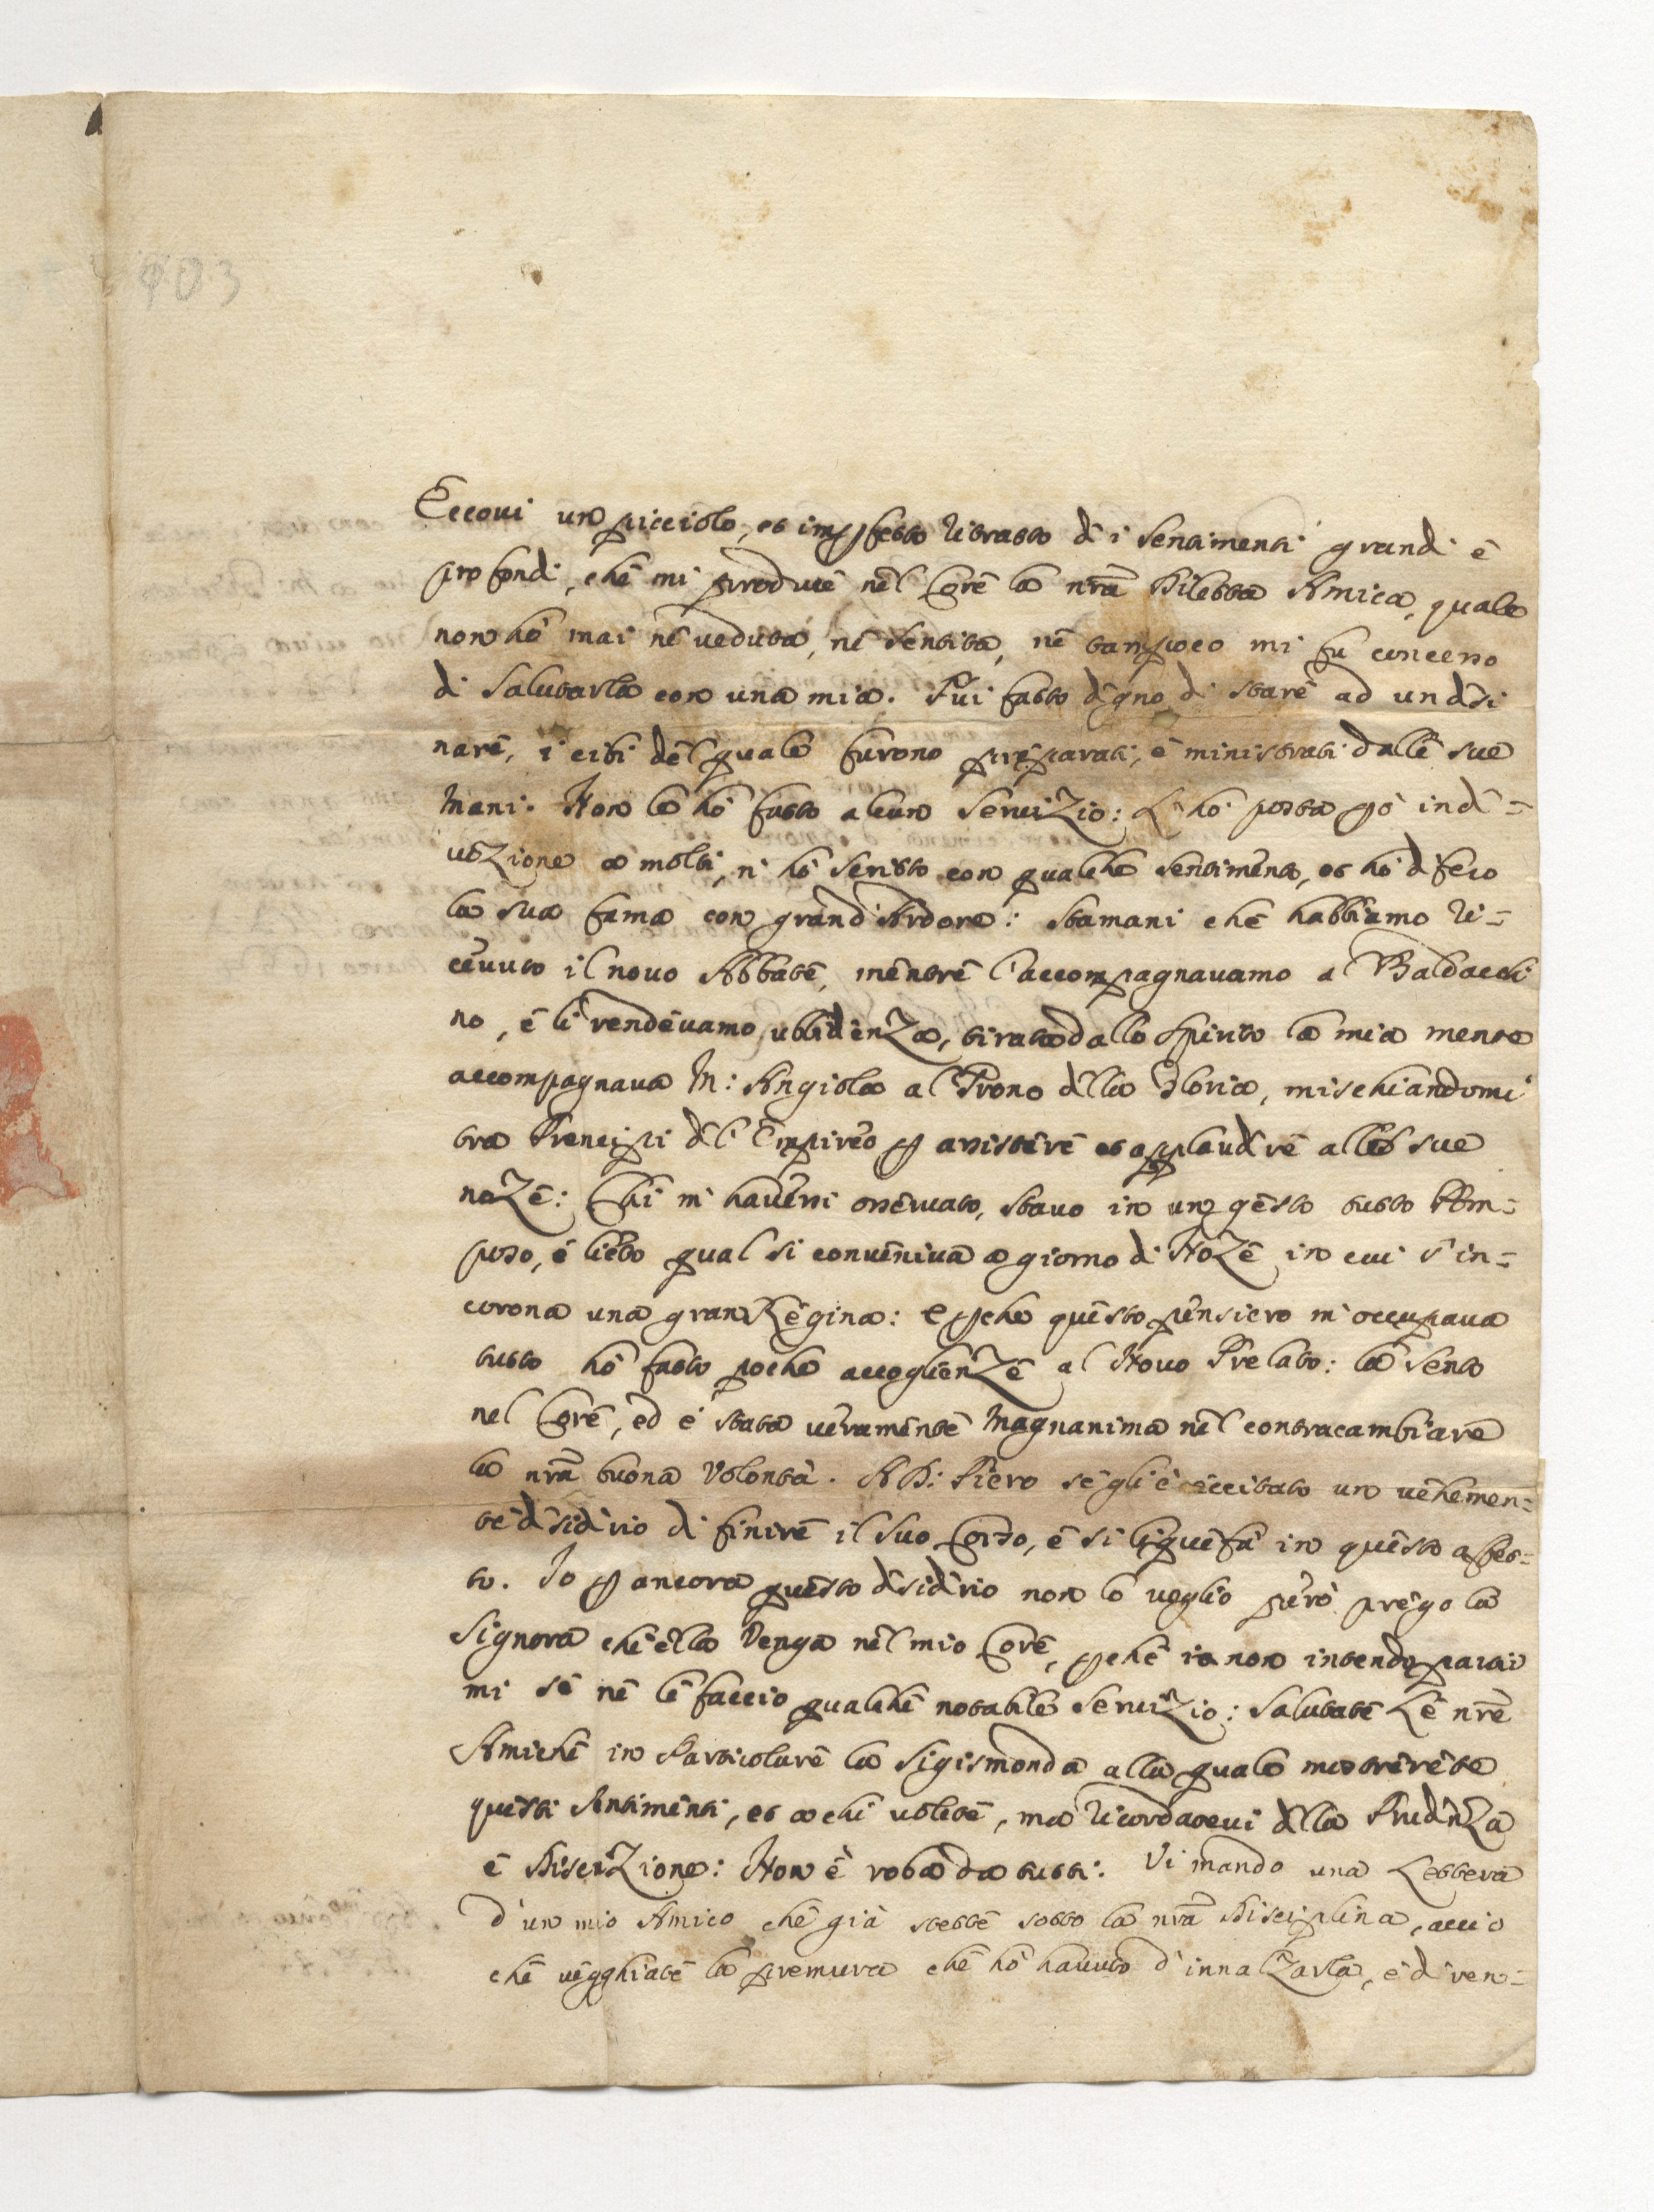 403
Eccovi un picciolo, et imp̱fetto ritratto di i sentimenti grandi é
profondi, chē mi produce nēl Corē la nrā Diletta Amica, quale
non hò mai né veduta, né sentita, nē tampoco mi fu concesso
di salutarla con una mia. Fui fatto degno di starē ad un desi
narē, i cibi dēl quale furono preparati, é ministrati dallē sue
mani. Non le hò fatto alcun servizio: L'hò posta p̱ò in de=
vozione a molti, n'hò scritto con qualche sentimento, et hò difeso
la sua fama con grand'Ardore: stamani chē habbiamo ri=
cēvuto il novo Abbatē, mēntrē l'accompagnavamo al Baldacchi
no, é li rendēvamo ubbidienza, tirata dallo spirito la mia mente
accompagnava M: Angiola al Trono della Gloria, mischiandomi
tra Prencipi del'Empireo p̱ assisterē et applaudirē allē sue
nozē: Chi m'havessi ossērvato, stavo in un gēsto tutto Pom=
poso, é liēto qual si convēniva a giorno di Nozē in cui s'in=
corona una gran Rēgina: e p̱che quēsto pensiero m'occupava
tutto hò fatto poche accoglienzē al Novo Prelato: la sento
nel Corē, ed é stata vēramēntē magnanima nēl contracambiare
la nrā buona volontà. A D: Piero sé gli é eccitato un vēhemen=
té desiderio di finirē il suo Corso, é si liquefà in quēsto affet=
to. Io p̱ ancora quēsto desiderio non lo voglio però prēgo la
Signora chē ēlla venga nēl mio Corē, p̱chē io non intendo partir
mi sē nē lē faccio qualchē notabile servizio: salutatē Lē nrē
Amichē in Particolarē la Sigismonda alla quale mostrerēte
quēsti sentimēnti, et a chi voletē, ma ricordatevi della Prudēnza
é Discrezione: Non è roba da tutti. Vi mando una Lettera
d'un mio Amico chē già stettē sotto la nrā Disciplina, acciò
chē vēgghiatē la premura chē hò havuto d'innalzarla, é di ren=